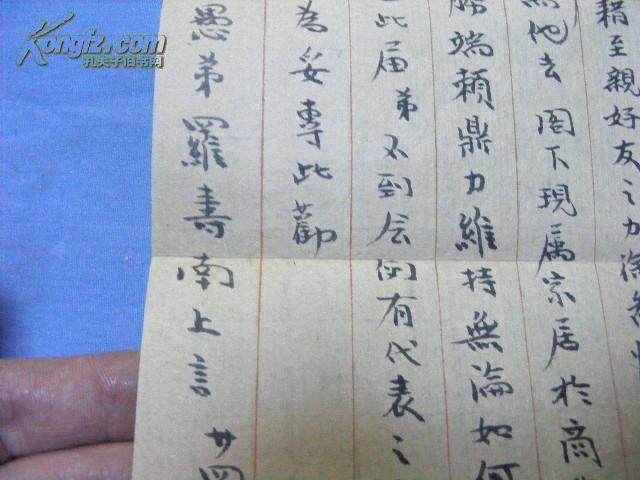 藉至親好友之力
他去 閣下現屬家居於商
端賴鼎力維持無論如何
此屆弟不到会倘有代表之
為妥專此勸
愚弟羅壽南上言 廿四
Kongfz.com
孔夫子旧书网